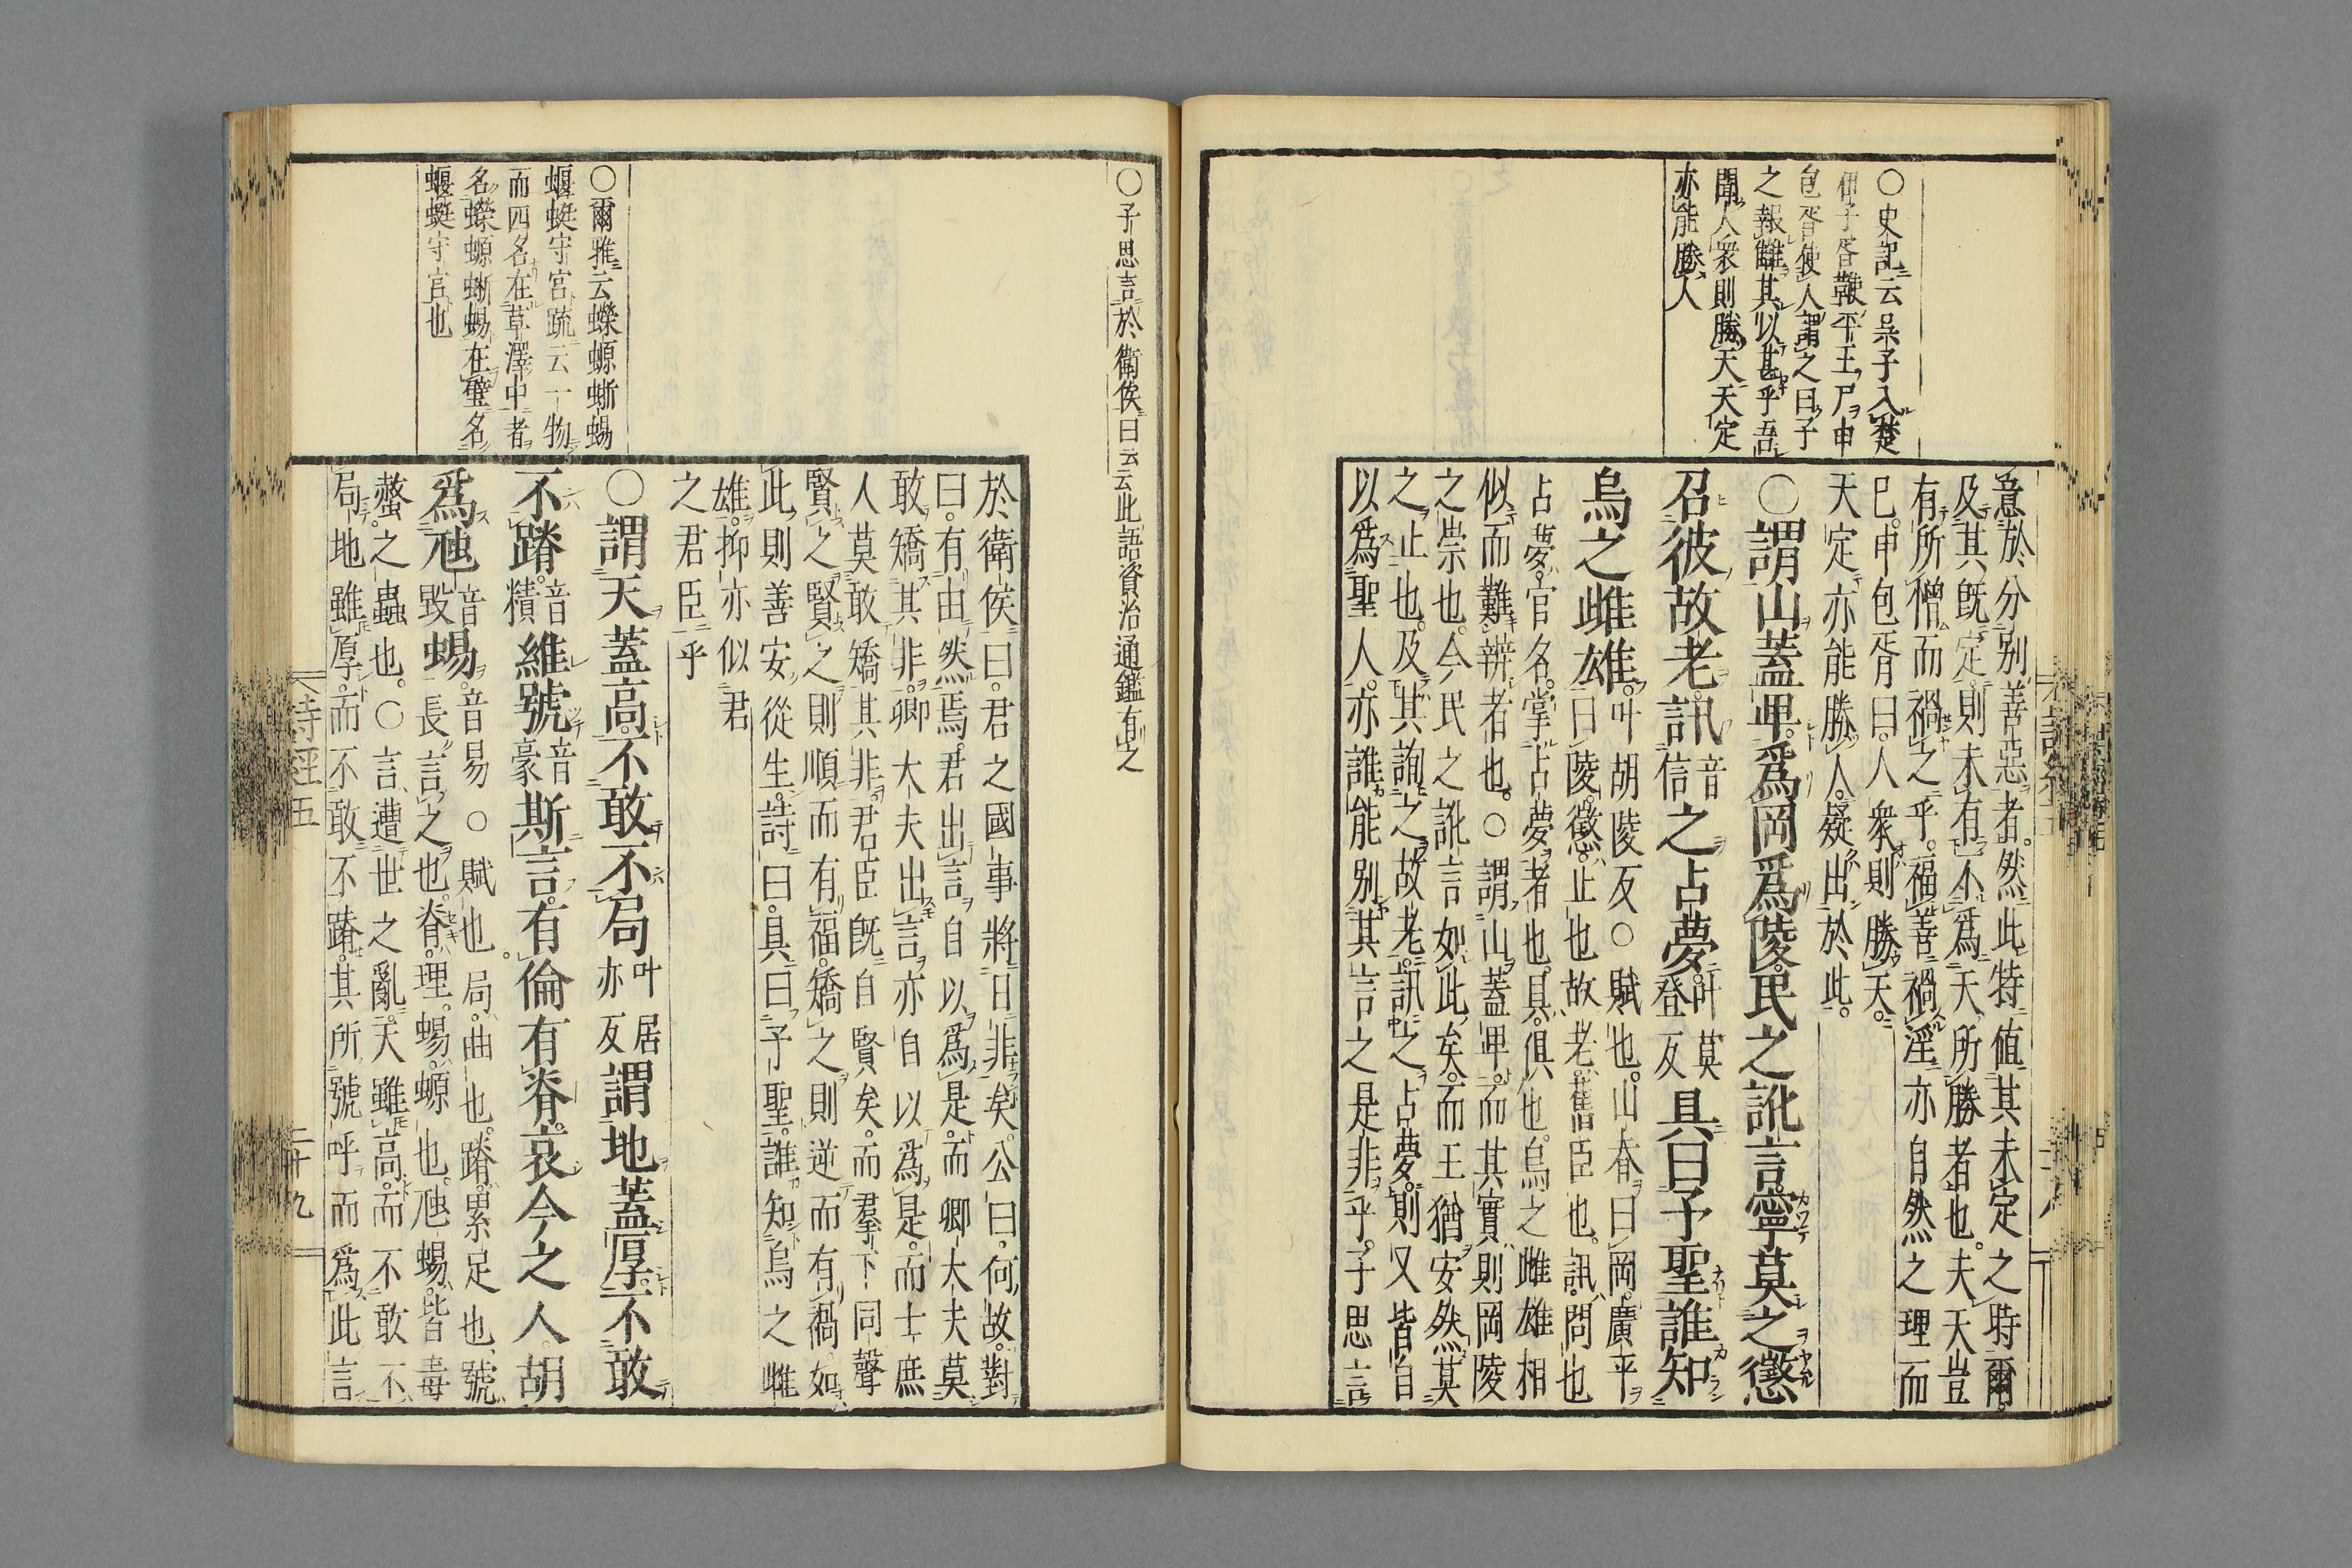 ○史記云呉子入楚
伍子胥鞭平王尸申
包胥使人謂之曰子
之報讎其以甚乎吾
聞人衆則勝天天定
亦能勝人
意於分別善惡者然此特値其未定之時爾
及其旣定則未有不爲天所勝者也夫天豈
有所憎而禍之乎福善禍淫亦自然之理而
已申包胥曰人衆則勝天
天定亦能勝人疑出於此
○謂山蓋卑爲岡爲陵民之訛言寧莫之懲
召彼故老訊音信之占夢叶莫登反具曰予聖誰知
烏之雌雄叶胡陵反○賦也山脊曰岡廣平
曰陵懲止也故老舊臣也訊問也
占夢官名掌占夢者也具俱也烏之雌雄相
似而難辨者也○謂山蓋卑而其實則岡陵
之崇也今民之訛言如此矣而王猶安然莫
之止也及其詢之故老訊之占夢則又皆自
以爲聖人亦誰能別其言之是非乎子思言
○子思言於衛侯曰云云此語資治通鑑有之
於衛侯曰君之國事將日非矣公曰何故對
曰有由然焉君出言自以爲是而卿大夫莫
敢矯其非卿大夫出言亦自以爲是而士庶
人莫敢矯其非君臣旣自賢矣而羣下同聲
賢之賢之則順而有福矯之則逆而有禍如
此則善安從生詩曰具曰予聖誰知烏之雌
雄抑亦似君
之君臣乎
○爾雅云蠑螈蜥蜴
蝘蜓守宮疏云一物
而四名在草澤中者
名蠑螈蜥蜴在壁名
蝘蜓守宮也
○謂天蓋高不敢不局叶居亦反謂地蓋厚不敢
不蹐音積維號音豪斯言有倫有脊哀今之人胡
爲虺音毀蜴音易○賦也局曲也蹐累足也號
長言之也脊理蜴螈也虺蜴皆毒
螫之蟲也○言遭世之亂天雖高而不敢不
局地雖厚而不敢不蹐其所號呼而爲此言
詩經五
二十九